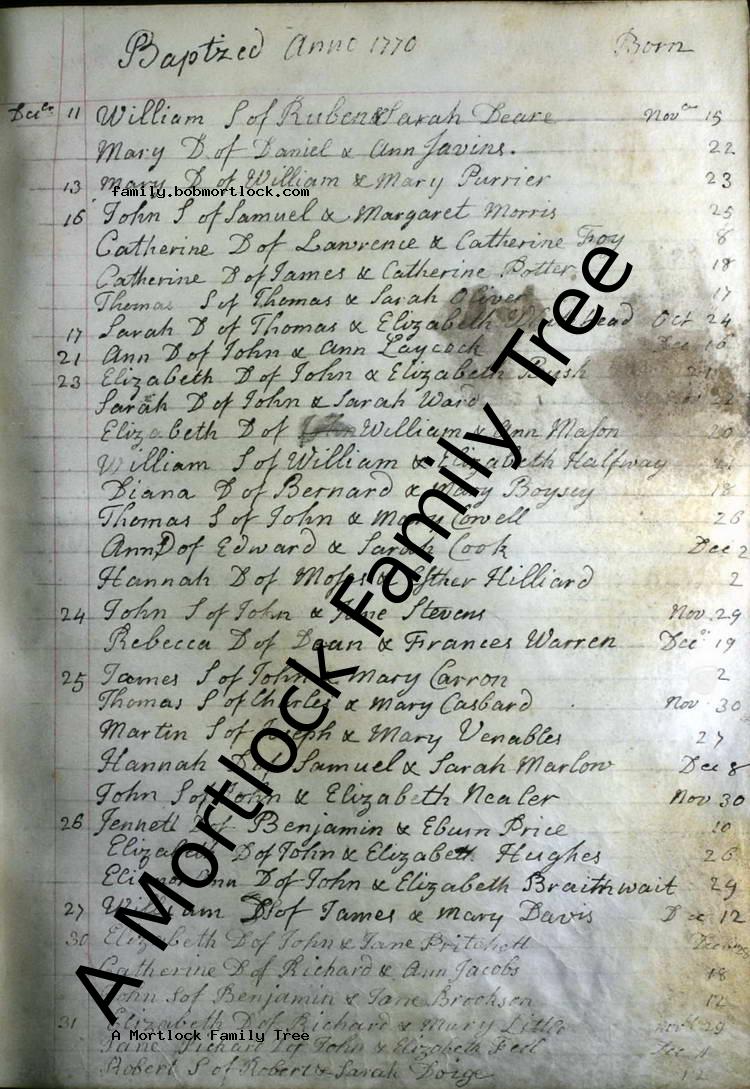 Baptzed Anno 1770 Born
Decr 11 William S of Ruben & Sarah Deare Novr 15
Mary D of Daniel & Ann Javins. 22
13 Mary D of William & Mary Purrier 23
family.bobmortlock.com
16 John S of Samuel & Margaret Morris 25
Catherine D of Lawrence & Catherine Foy 8
Catherine D of James & Catherine Potter 18
Thomas S of Thomas & Sarah Oliver 17
17 Sarah D of Thomas & Elizabeth Oct 24
21 Ann D of John & Ann Laycock Dec 16
23 Elizabeth D of John & Elizabeth Bush 21
Sarah D of John & Sarah Ward 22
Elizabeth D of William & Ann Mason 20
William S of William & Elizabeth Halfway
Diana D of Bernard & Mary Boysey 18
Thomas S of John & Mary Cowell 26
Ann D of Edward & Sarah Cook Dec 2
Hannah D of Moses & Esther Hilliard 2
24 John S of John & Jane Stevens Nov 29
Rebecca D of Dean & Frances Warren Decr 19
25 James S of John & Mary Carron 2
Thomas S of Charles & Mary Casbard Nov 30
Martin S of Joseph & Mary Venables 27
Hannah D of Samuel & Sarah Marlow Dec 8
John S of John & Elizabeth Nealer Nov 30
26 Jennett D of Benjamin & Eburn Price 10
Elizabeth D of John & Elizabeth Hughes 26
Elinor Ann D of John & Elizabeth Braithwait 29
27 William D of James & Mary Davis Dec 12
30 Elizabeth D of John & Jane Pritchett Dec
Catherine D of Richard & Ann Jacobs 18
John S of Benjamin & Jane Brookson 12
31 Elizabeth D of Richard & Mary Little Novr 29
A Mortlock Family Tree
Jane D of John & Elizabeth Fell Dec
Robert S of Robert & Sarah Doige 12
A Mortlock Family Tree